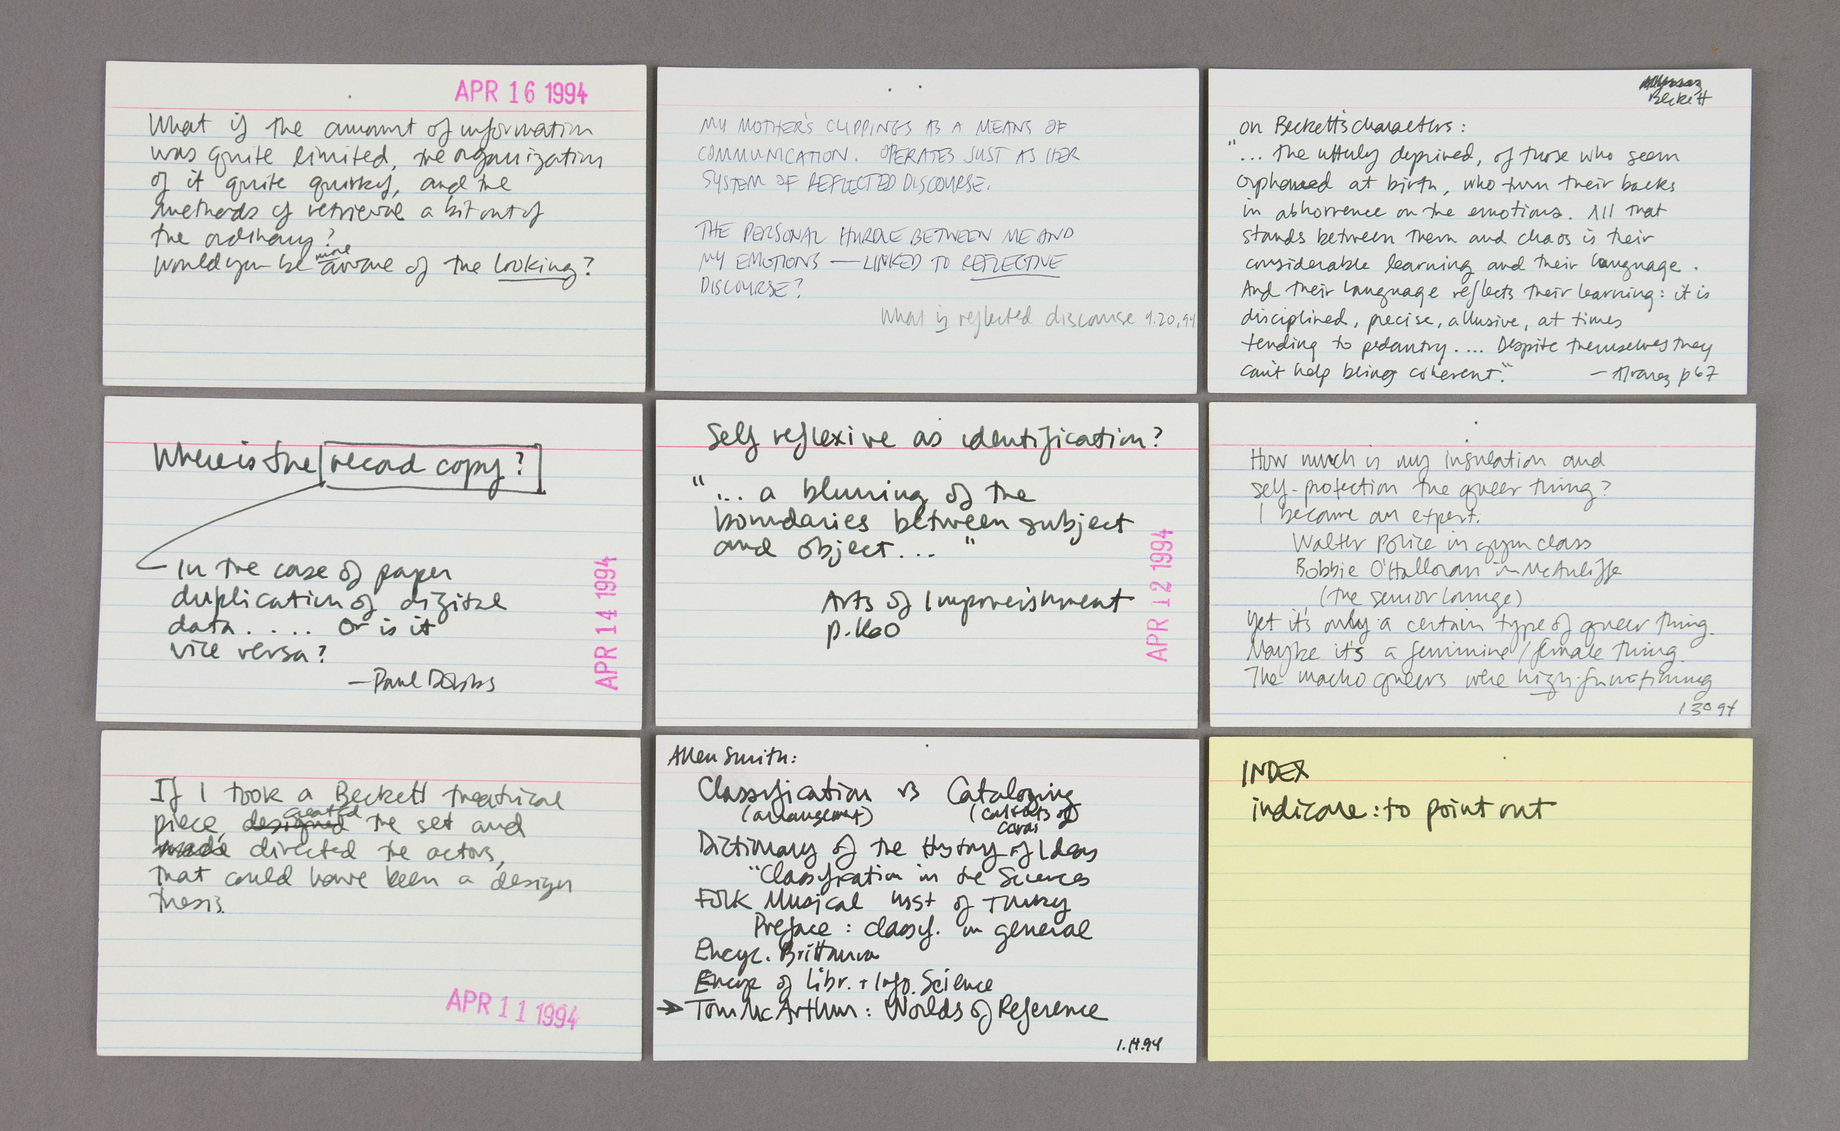 APR 16 1994
What if the amount of information
was quite limited, the organization
of it quite quirky, and the
methods of retrieval a bit out of
the ordinary?
Would you be more aware of the looking?
MY MOTHER'S CLIPPINGS AS A MEANS OF
COMMUNICATION. OPERATES JUST AS HER
SYSTEM OF REFLECTED DISCOURSE.
THE PERSONAL HURDLE BETWEEN ME AND
MY EMOTIONS — LINKED TO REFLECTIVE
DISCOURSE?
What is reflected discourse 9.20.94
Beckett
on Beckett's characters:
"... the utterly deprived, of those who seem
orphaned at birth, who turn their backs
in abhorrence on the emotions. All that
stands between them and chaos is their
considerable learning and their language.
And their language reflects their learning: it is
disciplined, precise, allusive, at times
tending to pedantry.... Despite themselves they
can't help being coherent."
— Alvarez p 67
Where is the record copy?
In the case of paper
duplication of digital
data..... Or is it
vice versa?
— Paul
APR 14 1994
Self reflexive as identification?
"... a blurring of the
boundaries between subject
and object... "
Arts of Impoverishment
APR 12 1994
How much is my insulation and
self-protection the queer thing?
I became an expert.
Walter Police in gym class
Bobbie O'Halloran in McAuliffe
(the senior lounge)
Yet it's only a certain type of queer thing.
Maybe it's a feminine/female thing.
The macho queers were high-functioning
1 30 94
If I took a Beckett theatrical
piece, designed created the set and
made directed the actors,
that could have been a design
thesis.
APR 11 1994
Allen Smith:
Classification vs Cataloging
(arrangement) (contents of
cards)
Dictionary of the History of Ideas
"Classification in the Sciences
Folk Musical Inst of Turkey
Preface: classif. in general
Encyc. Brittania
Encyc of Libr. + Info. Science
→ Tom McArthur: Worlds of Reference
1.14.94
INDEX
indicare: to point out